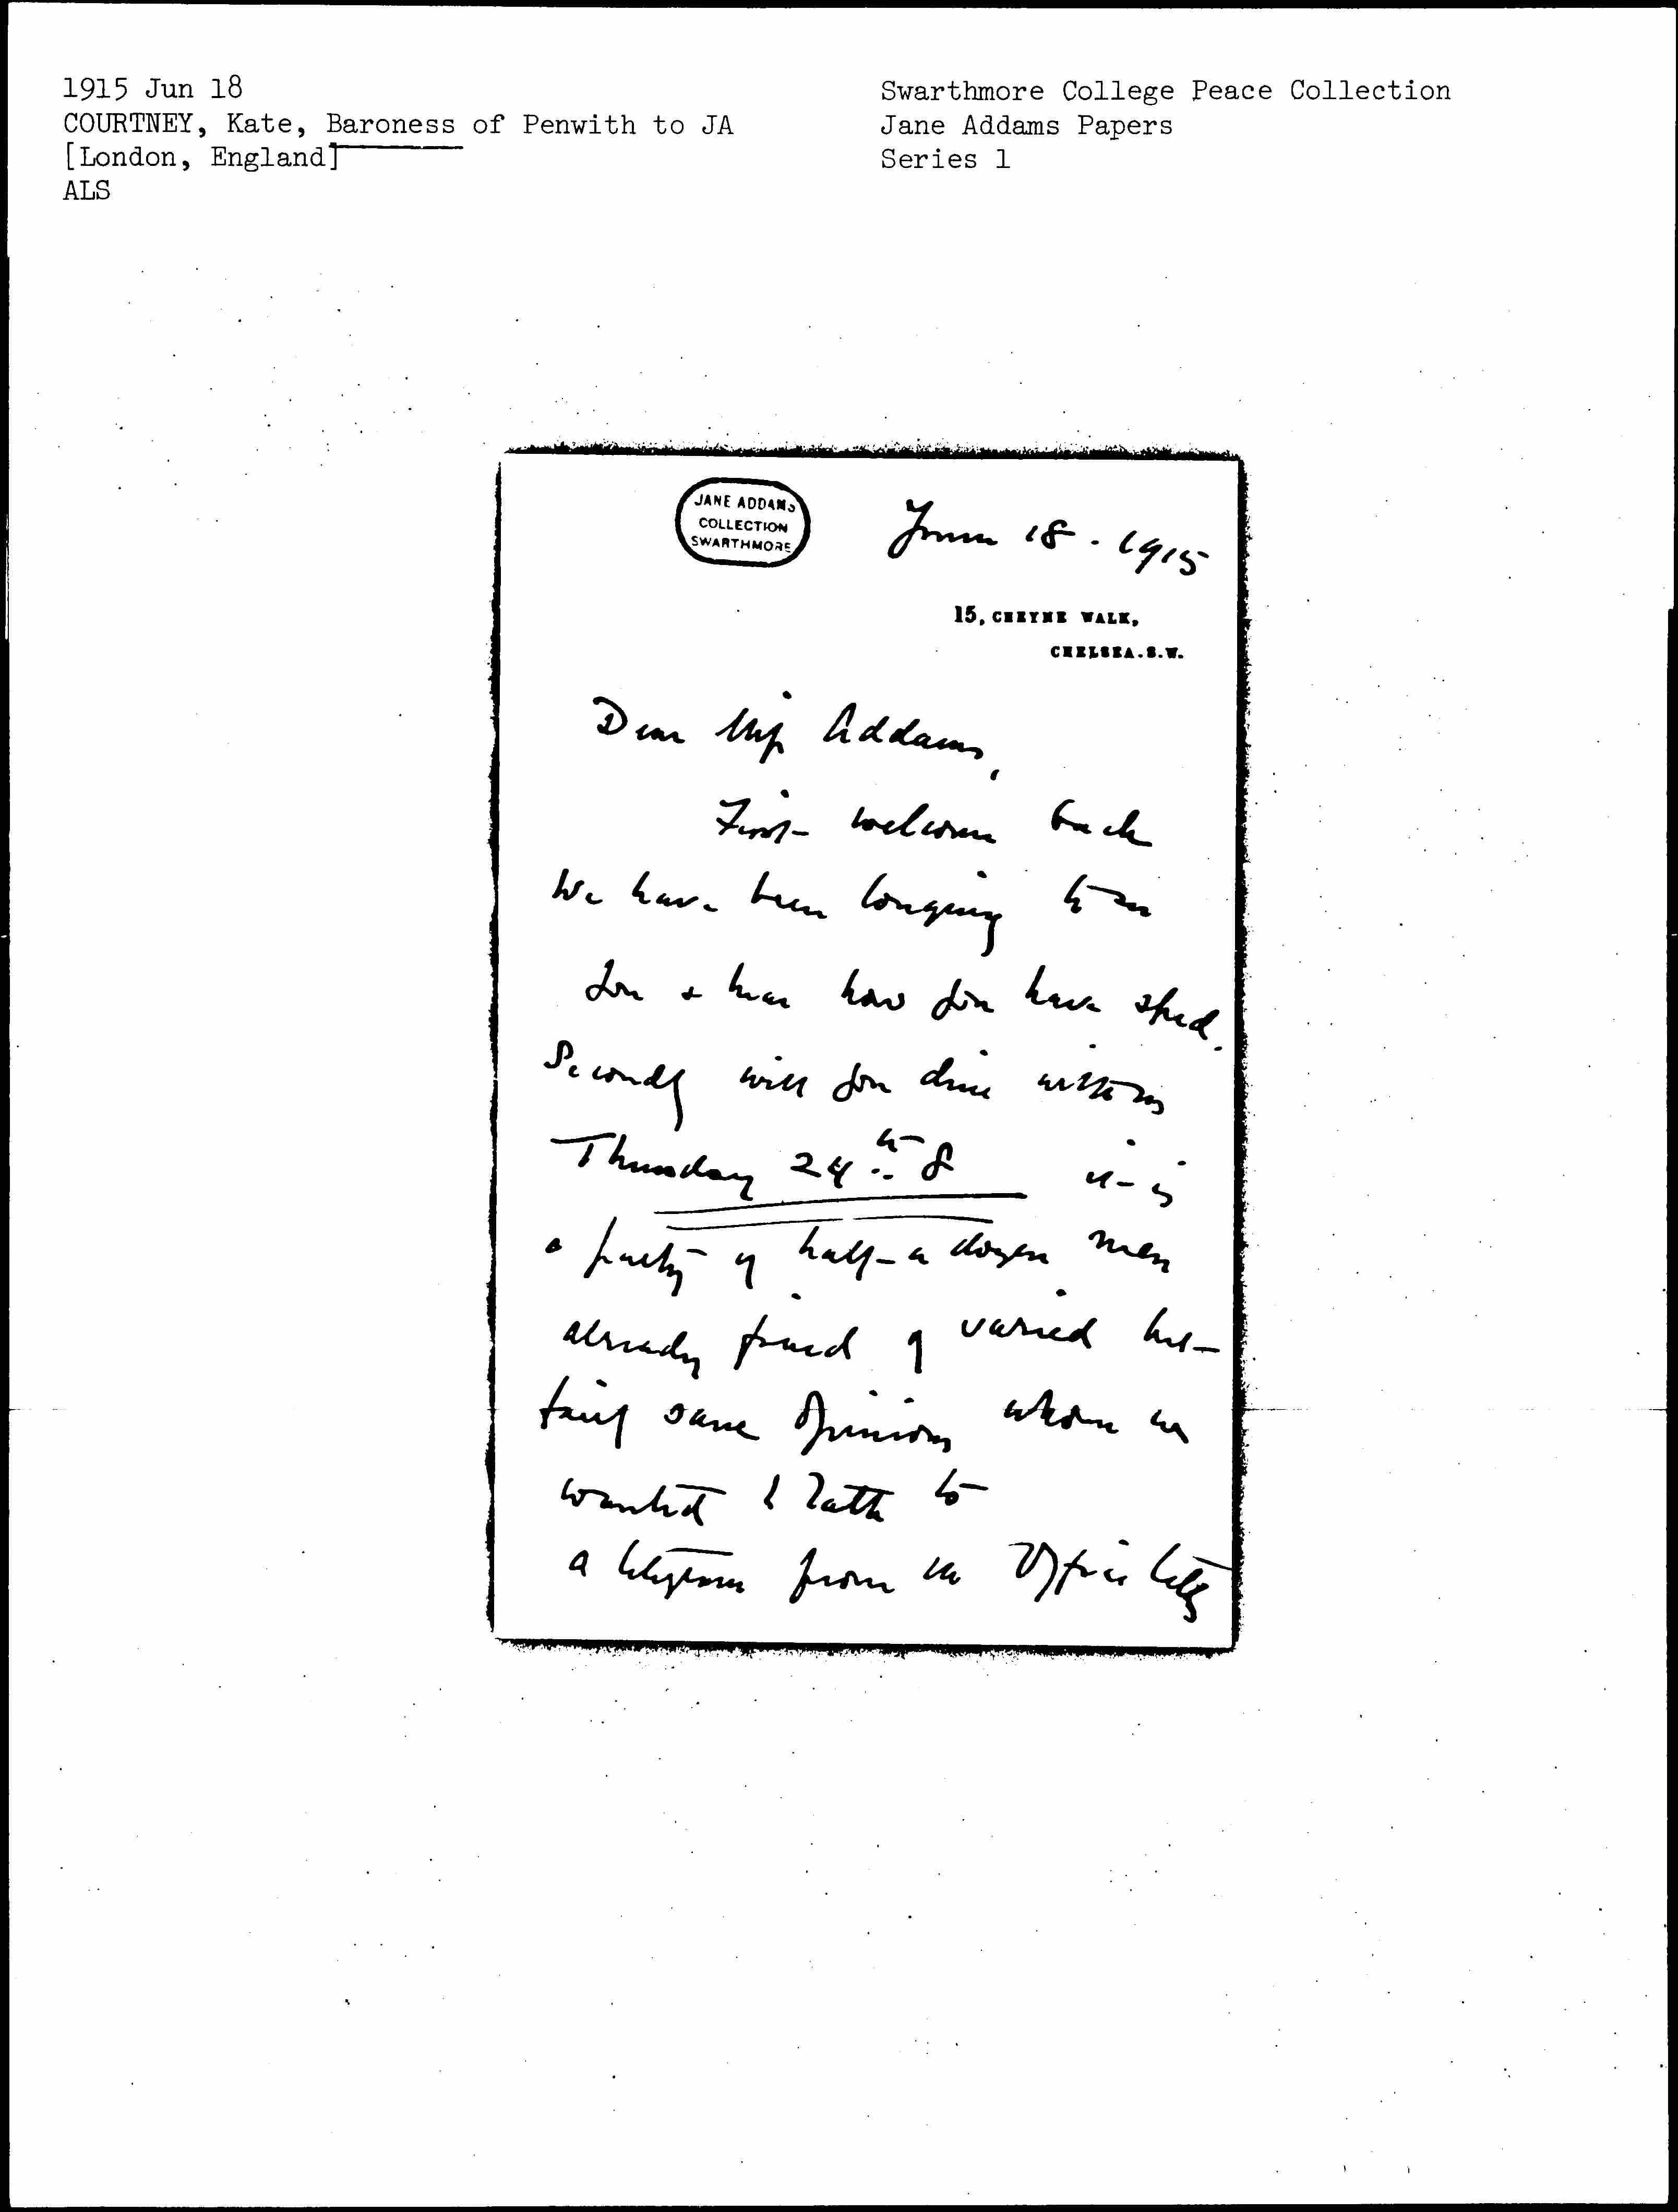 1915 Jun 18
COURTNEY, Kate, Baroness of Penwith to JA
[London, England]
ALS
Swarthmore College Peace Collection
Jane Addams Papers
Series 1
JANE ADDAMS
COLLECTION
SWARTHMORE
June 18 . 1915
15, CHEYNE WALK,
CHELSEA.S.W.
Dear Miss Addams,
First welcome back
We have been longing to see
you & hear how you have sped.
Secondly will you dine with us
Thursday 24th 8 it is
a party of half-a dozen men
already found of varied but
fairly sane opinions whom we
wanted to talk to
a telegram from